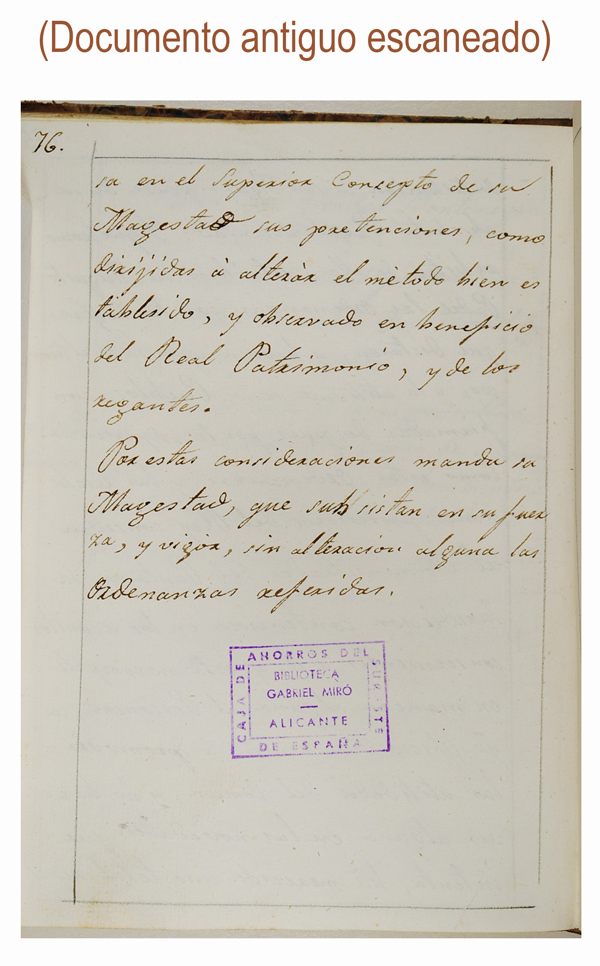 (Documento antiguo escaneado)
76.
sa en el Superior Concepto de su
Magestad sus pretenciones, como
dirijidas à alteràr el mètodo bien es
tablesido, y observado en beneficio
del Real Patrimonio, y de los
regantes.
Por estas consideraciones manda su
Magestad, que subsistan en su fuer
za, y vigor, sin alteracion alguna las
Ordenanzas referidas.
CAJA DE AHORROS DEL SURESTE
BIBLIOTECA
GABRIEL MIRÓ
ALICANTE
DE ESPAÑA